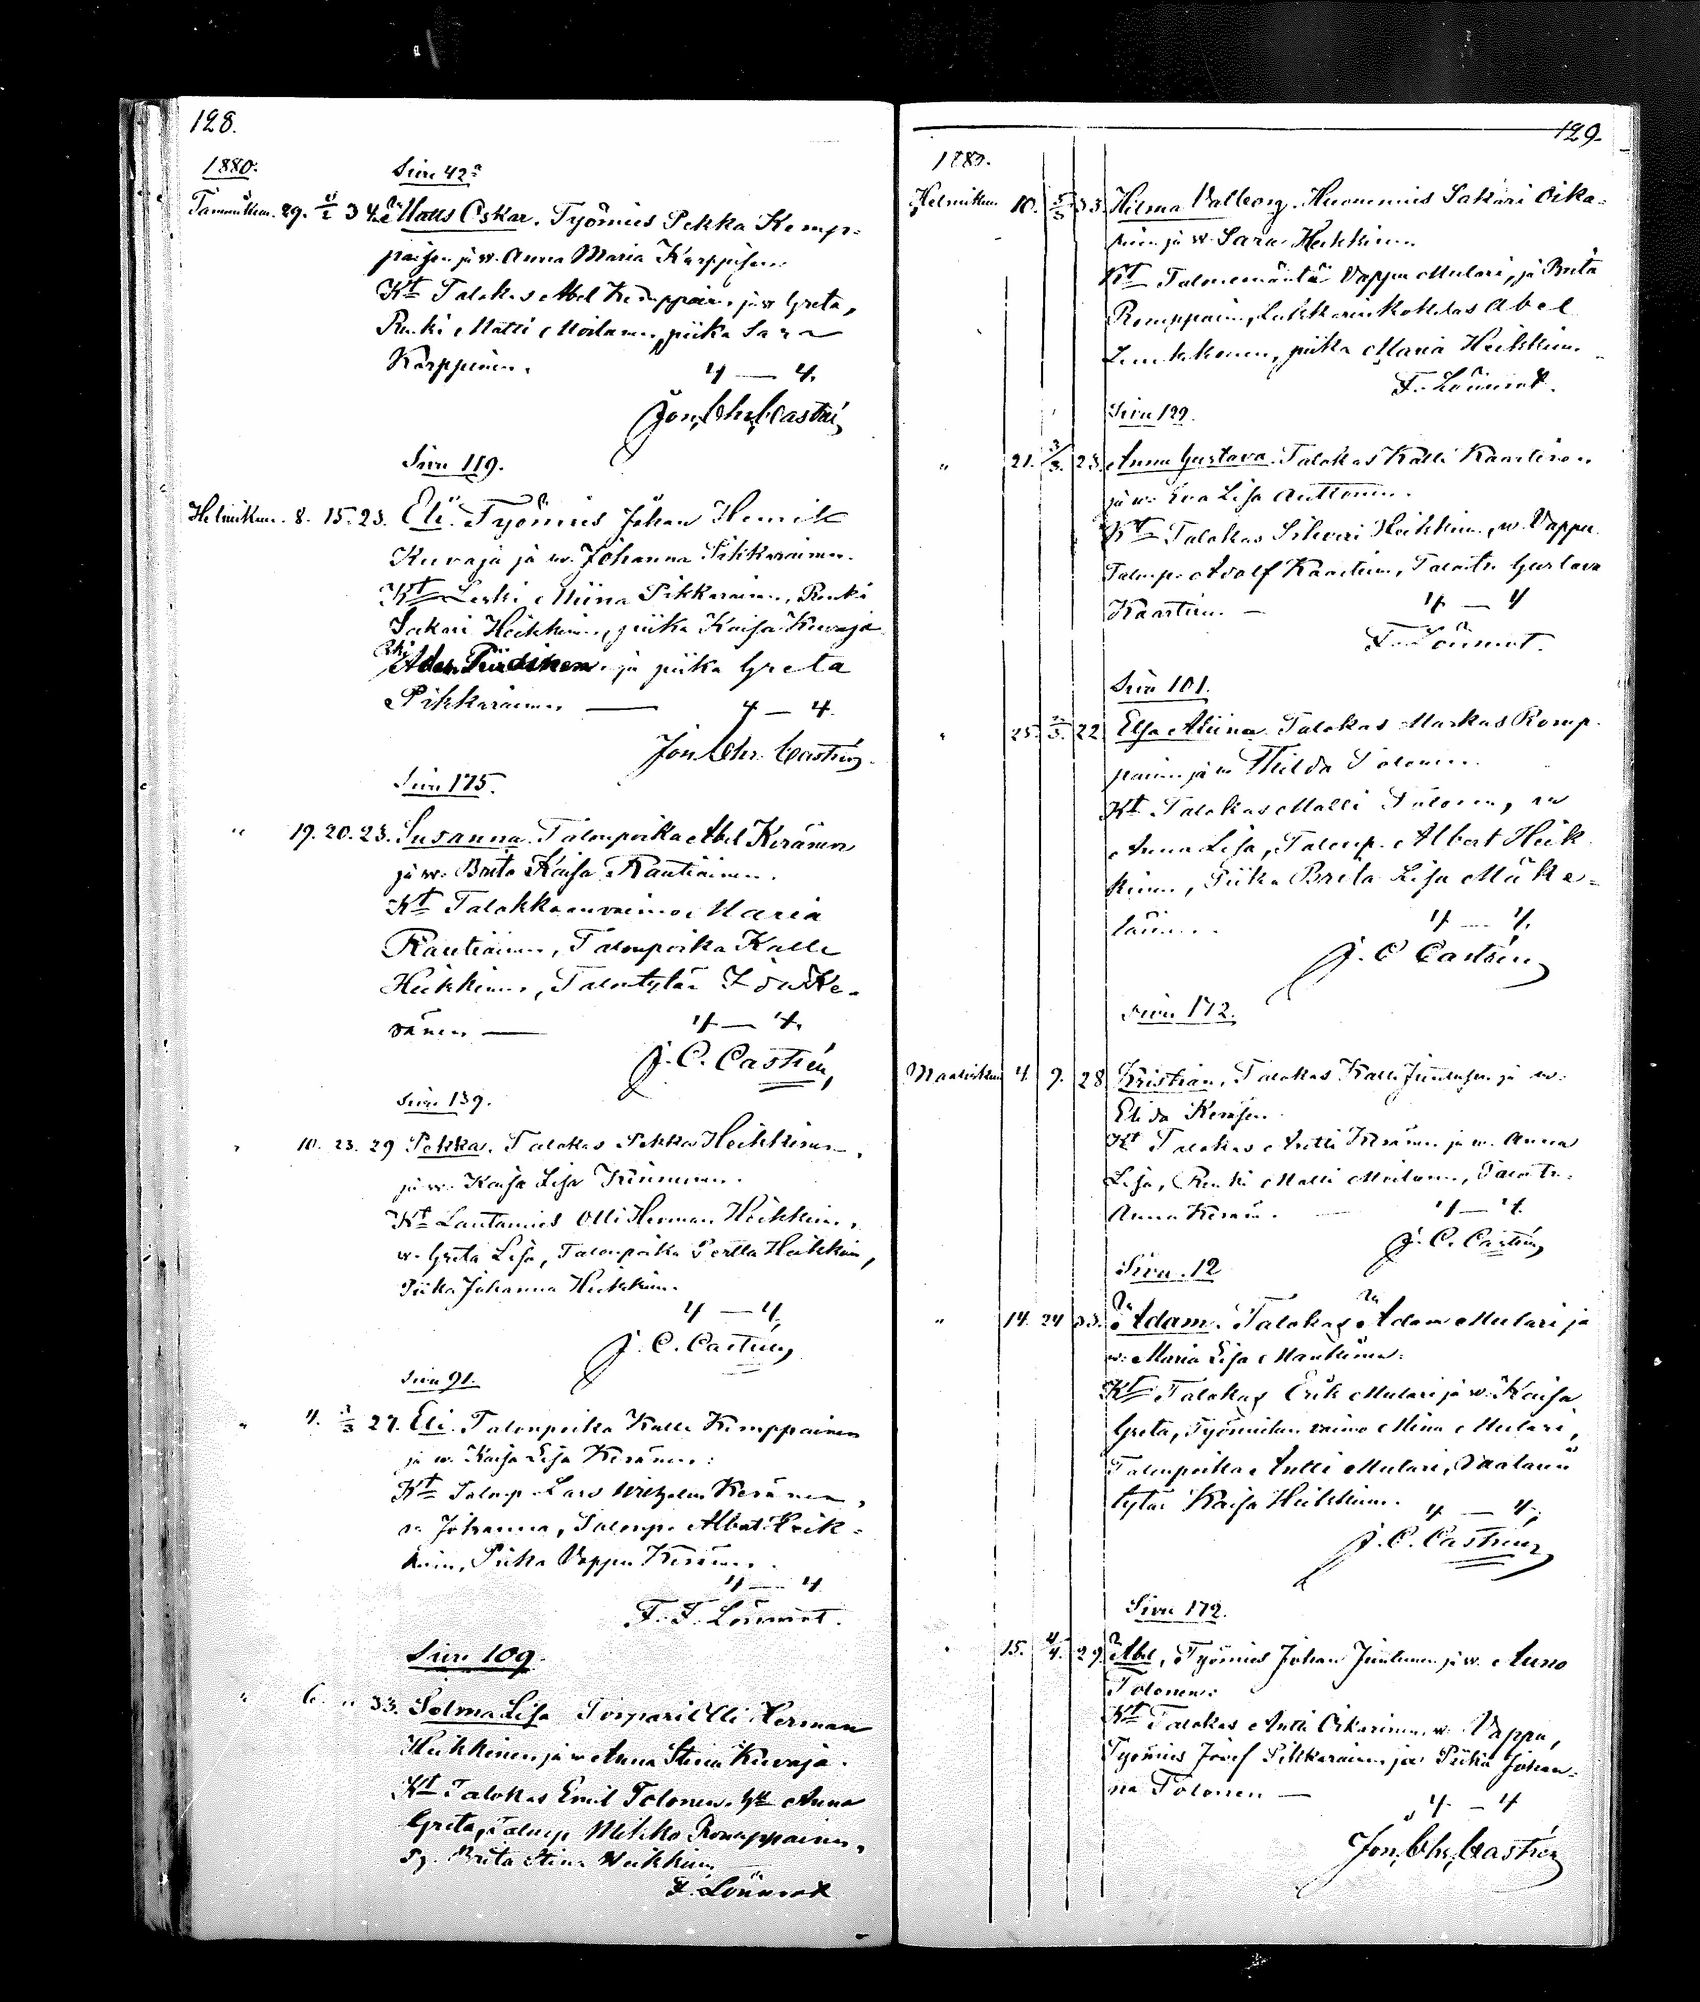 128.
1880.
Sivu 42a
Tammikuu. 29. 4/2 34. Matts Oskar. Työmies Pekka Kemp-
paisen ja w. Anna Maria Karppisen.
Kt Talokas Abel Kemppain. ja w Greta,
Renki Matti Moilanen, piika Sara
Karppinen.
4 — 4.
Joh. Chr. Castrén
Sivu 119.
Helmikuu. 8. 15. 23. Eli. Työmies Johan Henrik
Kuvaja ja w. Johanna Pikkarainen.
Kt Leski Miina Pikkarainen, Renki
Sakari Heikkinen, piika Kaisa Kuvaja
ja piika Greta
Pikkarainen — 4 — 4.
Joh. Chr. Castrén.
Sivu 175.
" 19. 20. 23. Susanna. Talonpoika Abel Keränen
ja w. Brita Kaisa Rautiainen.
Kt Talokkaan vaimo Maria
Rautiainen, Talonpoika Kalle
Heikkinen, Talontytär Ke-
ränen — 4 — 4.
J. C. Castrén,
Sivu 139.
" 10. 23. 29 Pekka. Talokas Pekka Heikkinen
ja w. Kaisa Lisa Kinnunen.
Kt Lautamies Olli Herman Heikkin.,
w. Greta Lisa, Talonpoika Pertta Heikkin,
Piika Johanna Heikkinen.
4 — 4.
J. C. Castrén,
Sivu 91.
" 4. 1/3 27. Eli. Talonpoika Kalle Kemppainen
ja w. Kaisa Lisa Keränen:
Kt Talonp. Lars Keränen,
w Johanna, Talonp. Albert Heik-
kinen, Piika Vappu Keränen.
4 — 4
F. F. Lönnrot.
Sivu 109.
" 6. " 33. Selma Lisa Torpari Olli Herman
Heikkinen ja w Anna Stina Kuvaja.
Kt Talokas Emil Tolonen, Anna
Greta, Talonp Mikko Romppainen,
Brita Stina Heikkinen
F. Lönnrot
129.
1880.
Helmikuu 10. 5/3 33. Hilma Valborg. Huonemies Sakari Oika-
rinen ja w. Sara Heikkinen.
Kt Talonemäntä Vappu Mulari, ja Brita
Romppainen, Abel
piika Maria Heikkinen.
F. Lönnrot.
Sivu 129.
" 21. 3/3. 23. Anna Gustava. Talokas Kalle Kaartinen
ja w. Eva Lisa Anttonen.
Kt Talokas Heikkinen, w. Vappu
Talonp. Adolf Kaartinen, Talontr Gustava
Kaartinen — 4 — 4
F. Lönnrot.
Sivu 101.
" 25. 22 Elsa Alina. Talokas Markus Romp-
painen ja w Thilda Tolonen.
Kt Talokas Matti Tolonen, w
Anna Lisa, Talonp. Albert Heik
kinen, Piika Brita Lisa Mäke-
läinen. 4 — 4.
J. C Castrén,
Sivu 172.
Maaliskuu 4. 9. 28 Kristian. Talokas Kalle Juntunen ja w.
Elida Keräsen.
Kt Talokas Antti Keränen ja w. Anna
Lisa, Renki Matti Moilanen, Talontr.
Anna Kerän. — 4 — 4.
J. C. Castrén
Sivu. 12
" 14. 24 33. Adam. Talokas Adam Mulari ja
w. Maria Lisa Mantinen.
Kt Talokas Erik Mulari ja w. Kaisa
Greta, Työmiehen vaimo Mina Mulari,
Talonpoika Antti Mulari,
tytär Kaisa Heikkinen. 4 — 4.
J. C. Castrén,
Sivu 172.
" 15. 4/4. 29. Abel, Työmies Johan Juntunen ja w. Anna
Tolonen.
Kt Talokas Antti Oikarinen, w. Vappu,
Työmies Josef Pikkarainen ja Piika Johan-
na Tolonen —
4 — 4
Joh. Chr. Castrén